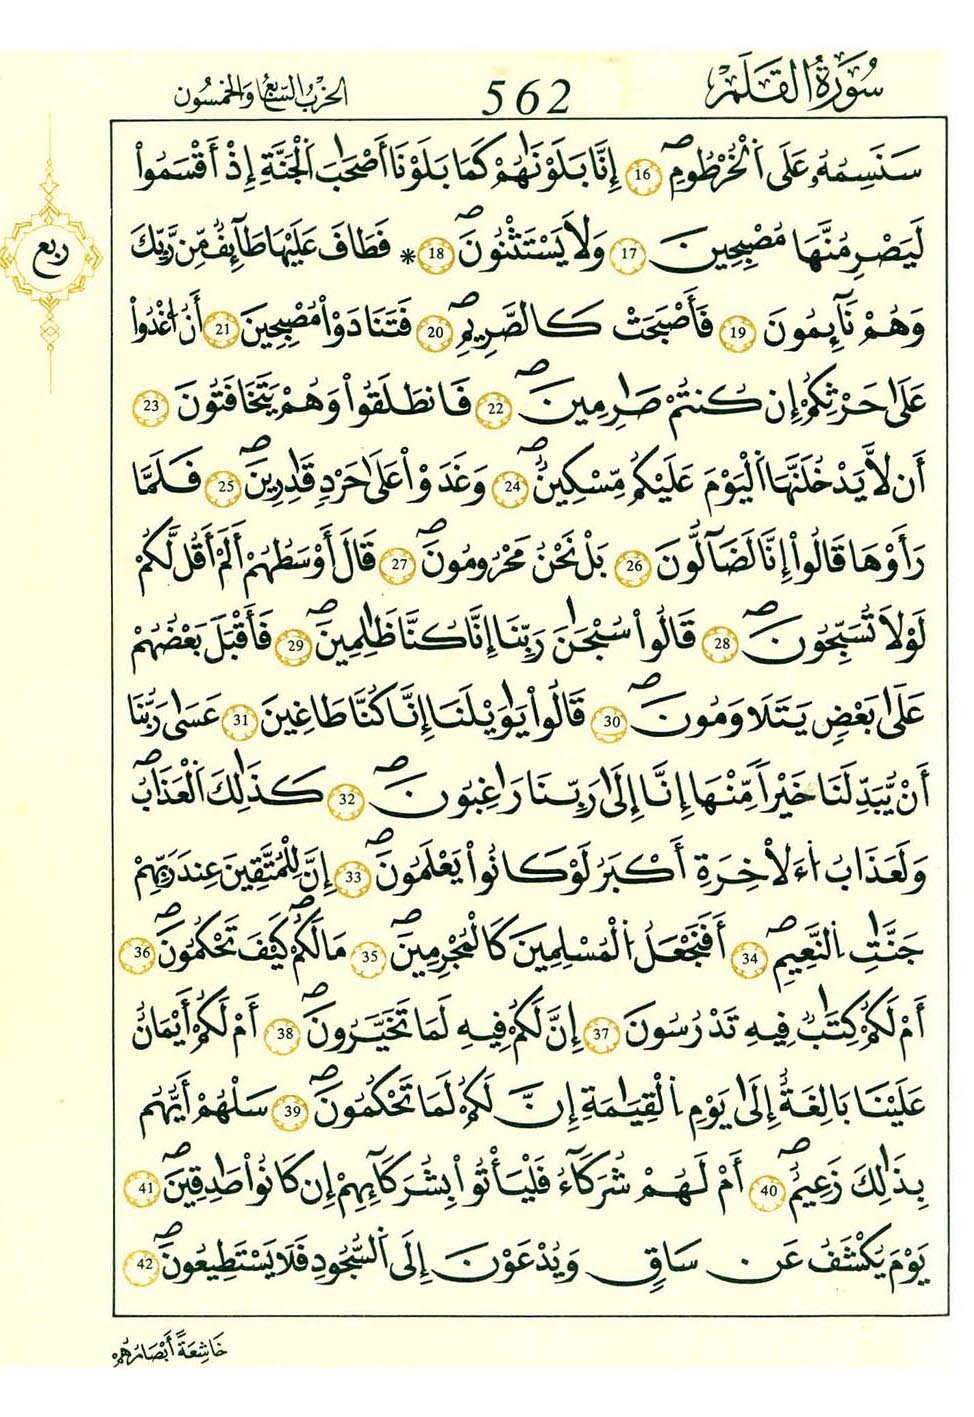 سُورَةُ الْقَلَمِ
562
الحزب السابع والخمسون
سَنَسِمُهُۥ عَلَى اَ۬لْخُرْطُومِۖ 16 إِنَّا بَلَوْنَٰهُمْ كَمَا بَلَوْنَا أَصْحَٰبَ اَ۬لْجَنَّةِ إِذْ أَقْسَمُواْ
لَيَصْرِمُنَّهَا مُصْبِحِينَ 17 وَلَا يَسْتَثْنُونَۖ 18 * فَطَافَ عَلَيْهَا طَآئِفٞ مِّن رَّبِّكَ
ربع
وَهُمْ نَآئِمُونَ 19 فَأَصْبَحَتْ كَالصَّرِيمِۖ 20 فَتَنَادَوْاْ مُصْبِحِينَ 21 أَنُ اُ۟غْدُواْ
عَلَىٰ حَرْثِكُمُۥ إِن كُنتُمْ صَٰرِمِينَۖ 22 فَانطَلَقُواْ وَهُمْ يَتَخَٰفَتُونَ 23
أَن لَّا يَدْخُلَنَّهَا اَ۬لْيَوْمَ عَلَيْكُم مِّسْكِينٞۖ 24 وَغَدَوْاْ عَلَىٰ حَرْدٖ قَٰدِرِينَۖ 25 فَلَمَّا
رَأَوْهَا قَالُواْ إِنَّا لَضَآلُّونَ 26 بَلْ نَحْنُ مَحْرُومُونَۖ 27 قَالَ أَوْسَطُهُمْ أَلَمْ أَقُل لَّكُمْ
لَوْلَا تُسَبِّحُونَۖ 28 قَالُواْ سُبْحَٰنَ رَبِّنَا إِنَّا كُنَّا ظَٰلِمِينَۖ 29 فَأَقْبَلَ بَعْضُهُمْ
عَلَىٰ بَعْضٖ يَتَلَٰوَمُونَۖ 30 قَالُواْ يَٰوَيْلَنَا إِنَّا كُنَّا طَٰغِينَ 31 عَسَىٰ رَبُّنَا
أَنْ يُّبَدِّلَنَا خَيْراٗ مِّنْهَا إِنَّا إِلَىٰ رَبِّنَا رَٰغِبُونَۖ 32 كَذَٰلِكَ اَ۬لْعَذَابُۖ
وَلَعَذَابُ اُ۬ءَلْأخِرَةِ أَكْبَرُ لَوْ كَانُواْ يَعْلَمُونَۖ 33 إِنَّ لِلْمُتَّقِينَ عِندَ رَبِّهِمْ
جَنَّٰتِ اِ۬لنَّعِيمِۖ 34 أَفَنَجْعَلُ اُ۬لْمُسْلِمِينَ كَالْمُجْرِمِينَۖ 35 مَا لَكُمْۖ كَيْفَ تَحْكُمُونَۖ 36
أَمْ لَكُمْ كِتَٰبٞ فِيهِ تَدْرُسُونَ 37 إِنَّ لَكُمْ فِيهِ لَمَا تَخَيَّرُونَۖ 38 أَمْ لَكُمُۥ أَيْمَٰنٌ
عَلَيْنَا بَٰلِغَةٌ إِلَىٰ يَوْمِ اِ۬لْقِيَٰمَةِ إِنَّ لَكُمْ لَمَا تَحْكُمُونَۖ 39 سَلْهُمُۥ أَيُّهُم
بِذَٰلِكَ زَعِيمٌۖ 40 أَمْ لَهُمْ شُرَكَآءُ فَلْيَأْتُواْ بِشُرَكَآئِهِمُۥ إِن كَانُواْ صَٰدِقِينَۖ 41
يَوْمَ يُكْشَفُ عَن سَاقٖ وَيُدْعَوْنَ إِلَى اَ۬لسُّجُودِ فَلَا يَسْتَطِيعُونَۖ 42
خَٰشِعَةً أَبْصَٰرُهُمْ